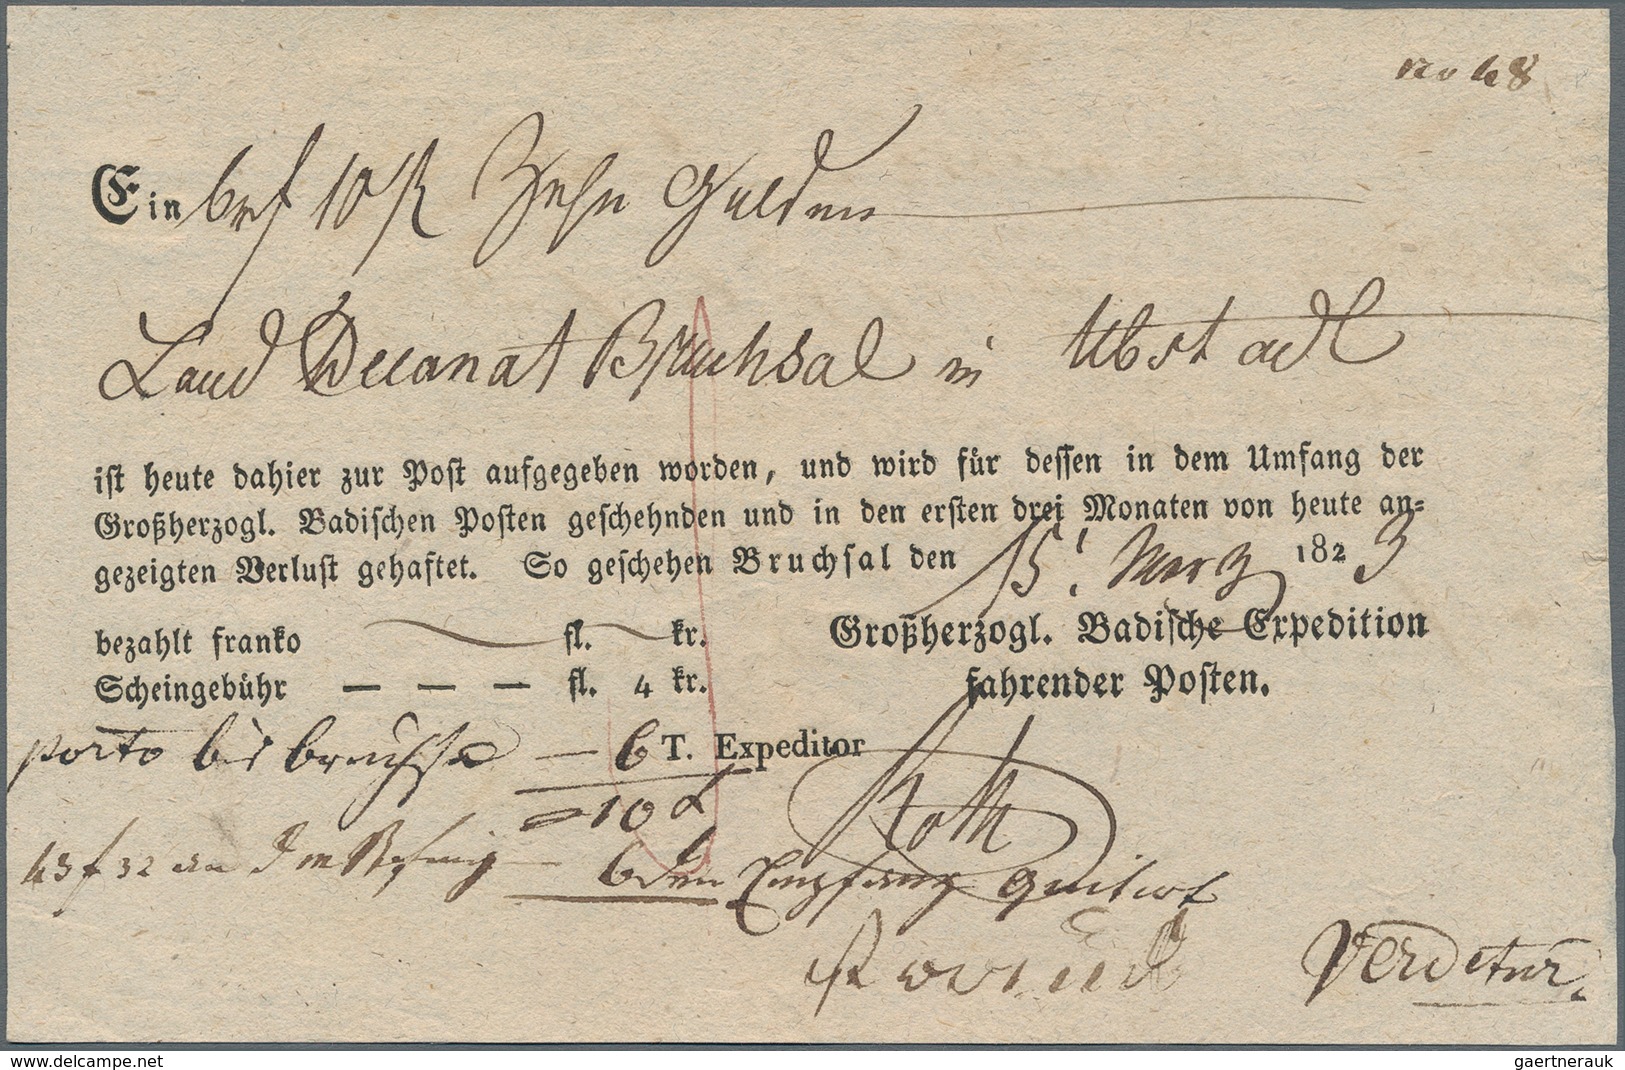 No 48
Ein brf 10 fl Zehn Gulden
Land Decanat Bruchsal in Ubstadt
ist heute dahier zur Post aufgegeben worden, und wird für dessen in dem Umfang der
Großherzogl. Badischen Posten geschehnden und in den ersten drei Monaten von heute an-
gezeigten Verlust gehaftet. So geschehen Bruchsal den 15t Merz 1823
bezahlt franko fl. kr. Großherzogl. Badische Expedition
Scheingebühr — — — fl. 4 kr. fahrender Posten.
porto bis bruchsal — 6 T. Expeditor
= 10 x Roth
43 f 32 an
6 den Empfang quitirt
Verdetur.
www.delcampe.net
gaertnerauk